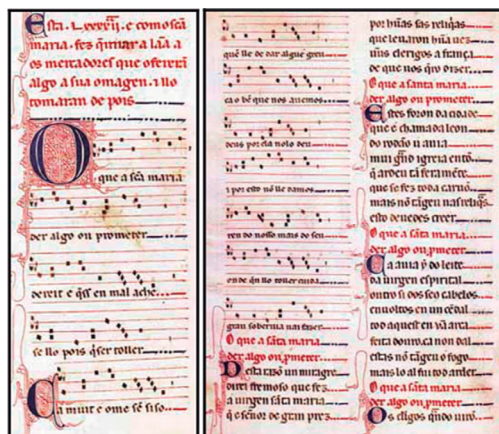 Esta .L. xxxxiij. e como scã
maria . fez q̃imar a lãa a
os mercadores que oferirã
algo a sua omagen . ⁊ llo
tomaran de pois
O
que a scã maria
der algo ou prometer
dereit e q̃ss en mal ache
se llo pois q̃ser toller
Ca muit e ome sẽ siso
quẽ lle de dar algue greu
ca o bẽ que nos auemos
deus por ela nolo deu
⁊ por esto nõ lle damos
ren do nosso mais do seu
onde quẽ llo toller cuida
gran soberuia uai fazer
O que a sãta maria
der algo ou pmeter
D esta razõ un miragre
direi fremoso que fez
a uirgen sãta maria
q̃ e señor de gran prez
por hũas sas reliq̃as
que leuaron hũa uez
ũus clerigos a frança
de que uos q̃ro dizer
O que a santa maria
der algo ou prometer
Estes foron da cidade
que e chamada leon
do rodão u auia
mui grãd igreia entõ
q̃ ardeu tã feramẽte
que se fez toda caruõ
mais nõ tãgeu nas reliq̃as
esto deuedes creer
O que a sãta maria
der algo ou pmeter
Ca auia y do leite
da uirgen espirital
outrosi dos seus cabelos
enuoltos en un cẽdal
tod aquest en ũa arca
feita douro ca non dal
estas nõ tãgeu o fogo
mais lo al foi tod arder
O que a sãta maria
der algo ou pmeter
Os cligos quãdo uirõ